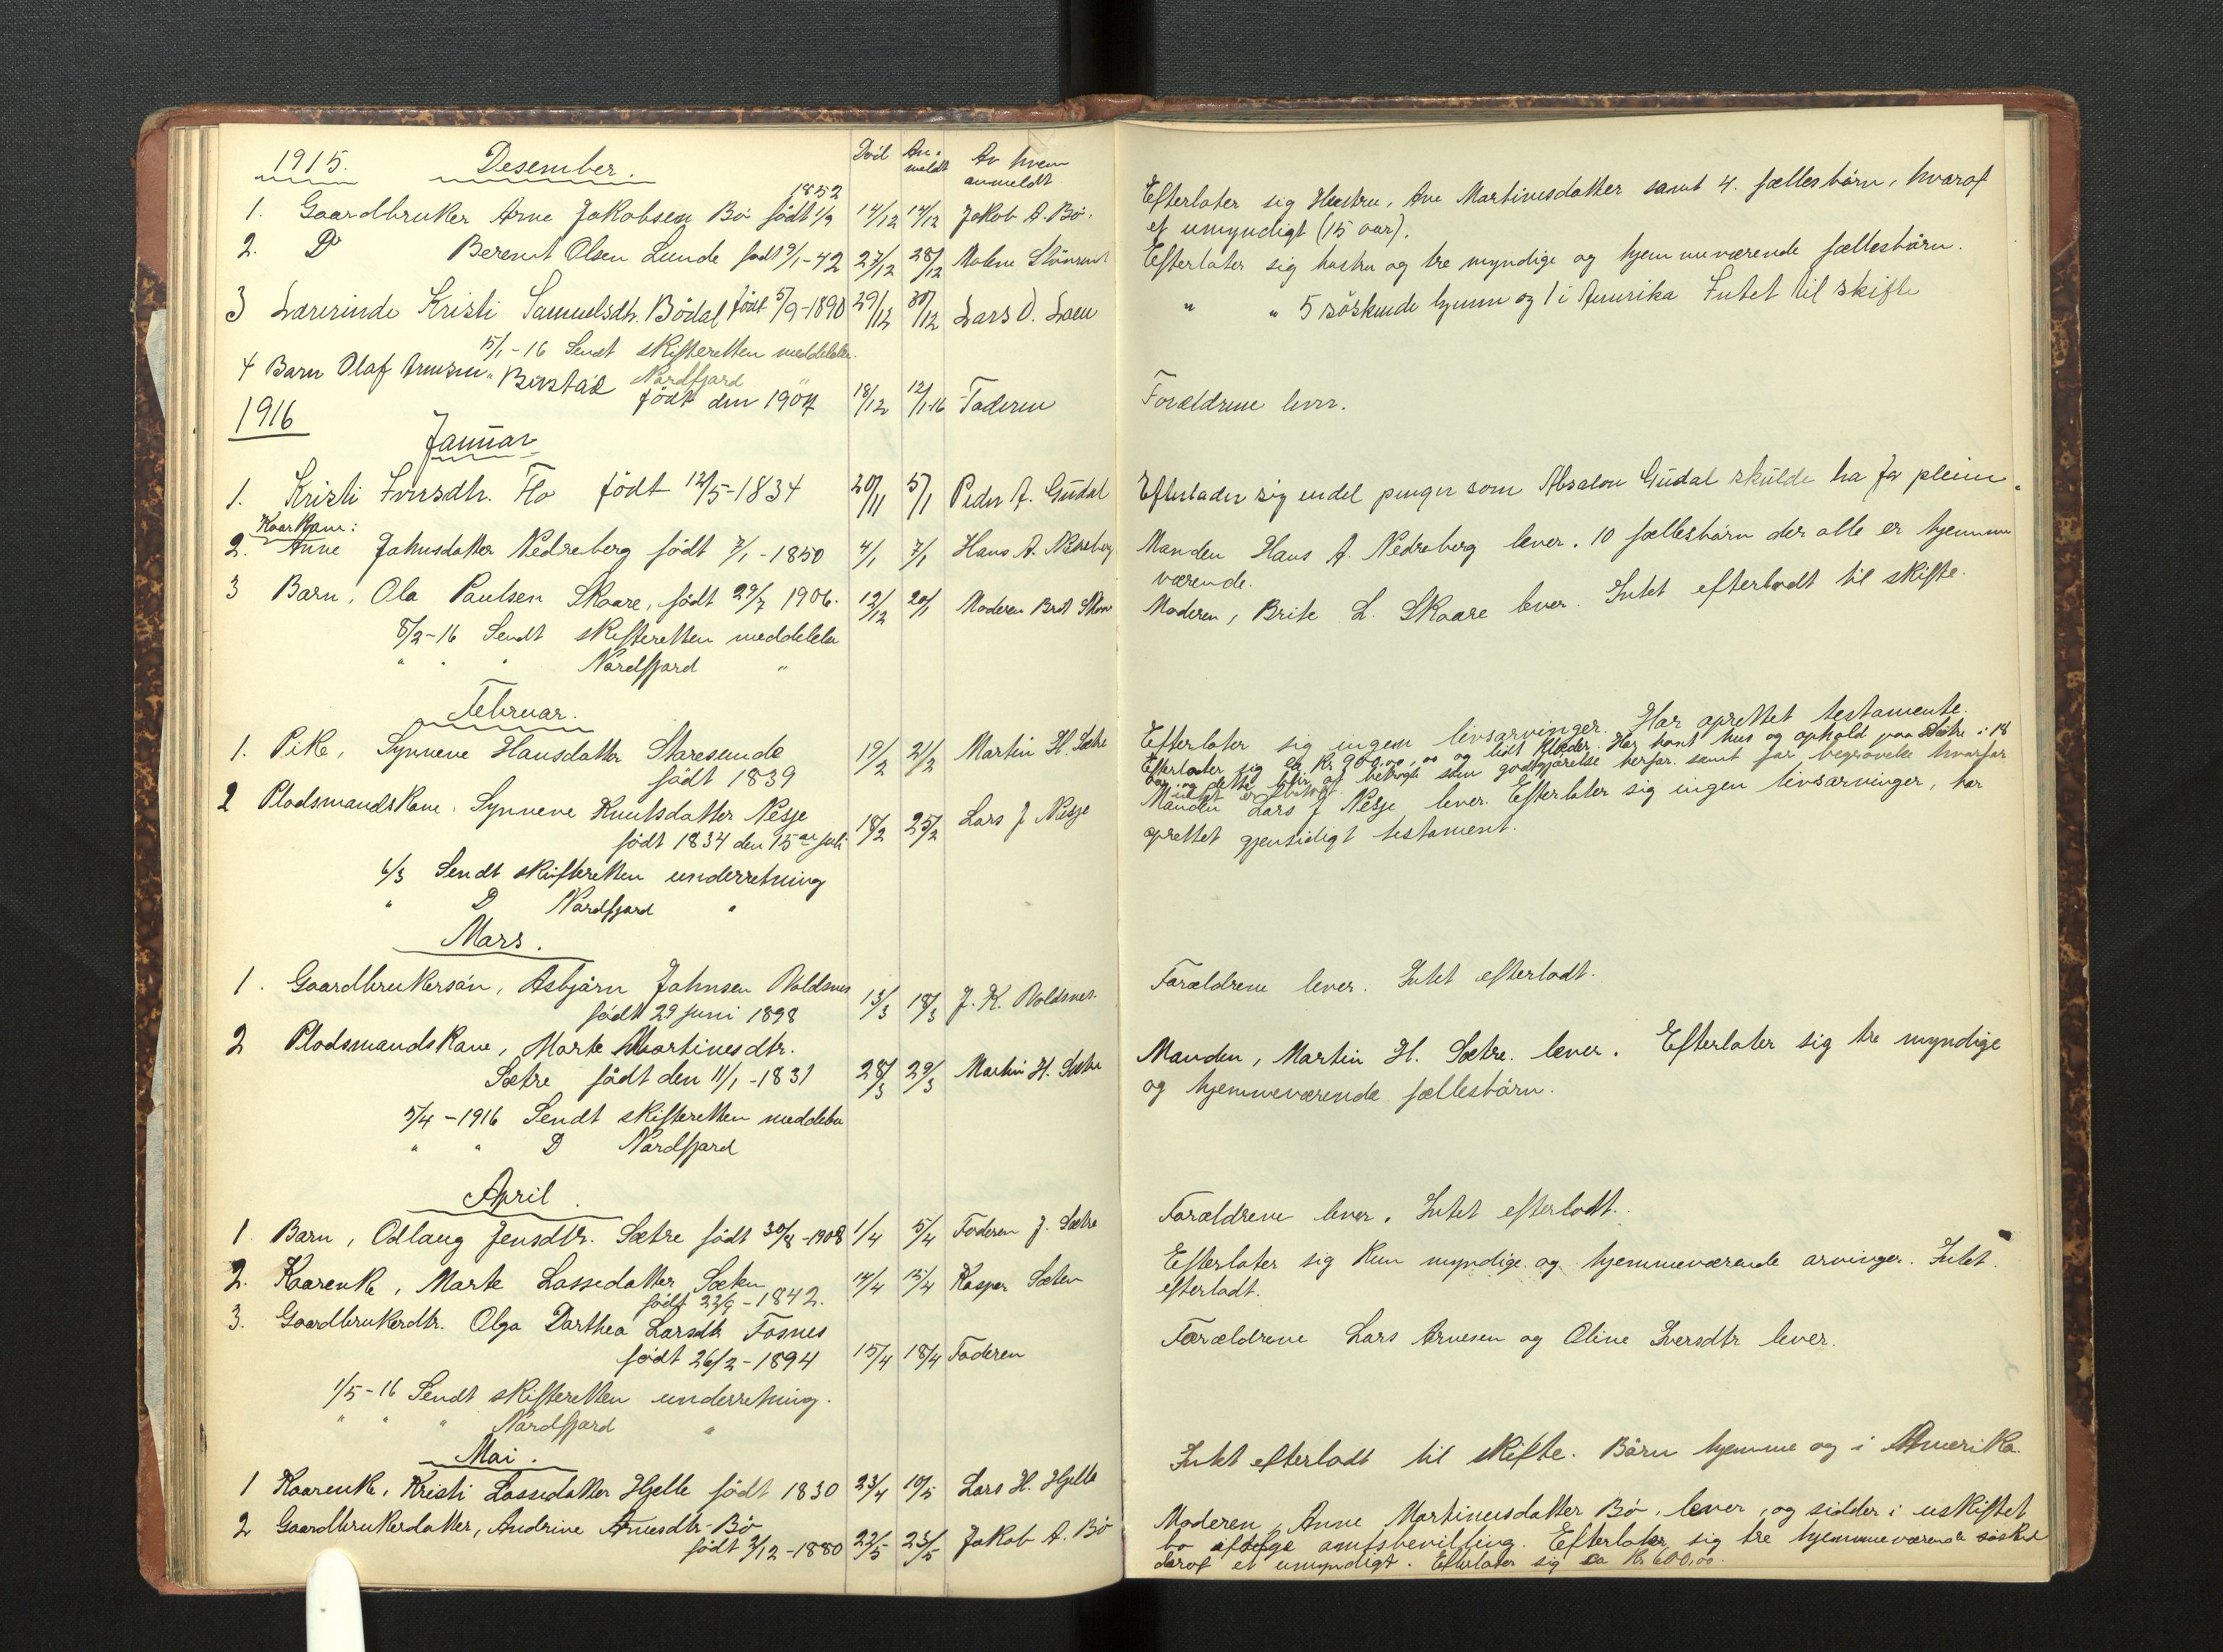 1915. Desember. Död An- Av hvem
meldt anmeldt
1852
1. Gaardbruker Arne Jakobsen Bö född 1/9 14/12 14/12 Jakob A. Bö.
2. Do Berent Olsen Lunde född 9/1-42 27/12 28/12 Malene
3 Lærerinde Kristi Samuelsdtr. Bödal född 5/9-1890 29/12 30/12 Lars O. Loen
15/1-16 Sendt skifteretten meddelelse.
" Nordfjord "
4 Barn Olaf Arnesen Bövstad
födt den 1907 18/12 12/1-16 Faderen
1916
Januar
1. Kristi Iversdtr. Flo födt 12/5-1834 20/11 5/1 Peder A. Gudal
Kaarkane:
2. Anne Johnsdatter Nedreberg födt 7/1-1850 4/1 7/1 Hans A. Nedreberg
3 Barn, Ola Paulsen Skaare, födt 29/7 1906. 12/12 20/1 Moderen Brit Skaare
8/2-16 Sendt skifteretten meddelelse
" " " Nordfjord "
Februar.
1. Pike, Synneve Hansdatter Staresunde 19/2 21/2 Martin H. Sætre
födt 1839
2 Pladsmandskone, Synneve Knutsdatter Nesje
födt 1834 den 15de juli 18/2 25/2 Lars J Nesje
6/3 Sendt skifteretten underretning
" D Nordfjord "
Mars.
1. Gaardbrukersön, Asbjörn Johnsen Voldsnes
födt 29 juni 1898 13/3 18/3 J. K. Voldsnes.
2 Pladsmandskone, Marte Martinesdtr.
Sætre födt den 11/1-1831 28/3 29/3 Martin H. Sætre
5/4-1916 Sendt skifteretten meddelelse
" " D Nordfjord
April.
1. Barn, Odlaug Jensdtr. Sætre födt 30/8-1908 1/4 5/4 Faderen J. Sætre
2. Kaarenke, Marte Lassedatter Sæten
födt 22/9-1842. 14/4 15/4 Kasper Sæten
3. Gaardbrukerdtr. Olga Dorthea Larsdtr Fosnes
födt 26/2-1894 15/4 18/4 Faderen
1/5-16 Sendt skifteretten underretning.
" " " Nordfjord "
Mai.
1 Kaarenke, Kristi Lassedatter Hjelle födt 1830 23/4 10/5 Lars H. Hjelle
2 Gaardbrukerdatter, Andrine Arnesdtr. Bö
födt 2/12-1880 22/5 23/5 Jakob A. Bö
Efterlater sig Hustru, Ane Martinusdatter samt 4. fællesbörn, hvoraf
et umyndigt (15 aar).
Efterlater sig hustru og tre myndige og hjemmeværende fællesbörn.
" " 5 söskende hjemme og 1 i Amerika Intet til skifte
Forældrene lever.
Efterlader sig endel penger som Absalon Gudal skulde ha for pleien.
Manden Hans A. Nedreberg lever. 10 fællesbörn der alle er hjemme
værende.
Moderen, Brite L. Skaare lever. Intet efterladt til skifte.
Efterlater sig ingen livsarvinger. Har oprettet testamente.
Efterlader sig ca Kr 900,00, og lidt klæder. Har havt hus og ophold paa Sætre i 18
aar og dette blir at betragte som godtgjörelse herfor samt for begravelse hvorfor
intet er
Manden Lars J Nesje lever. Efterlater sig ingen livsarvinger, har
oprettet gjensidigt testament.
Forældrene lever. Intet efterladt.
Manden, Martin H. Sætre. lever. Efterlater sig tre myndige
og hjemmeværende fællesbörn.
Forældrene lever. Intet efterladt.
Efterlater sig kun myndige og hjemmeværende arvinger. Intet
efterladt.
Forældrene Lars Arnesen og Oline Iversdtr lever.
Intet efterladt til skifte. Börn hjemme og i Amerika.
Moderen, Anne Martinusdatter Bö, lever, og sidder i uskiftet
bo ifölge amtsbevilling. Efterlater sig tre hjemmeværende söskend
deraf et umyndigt. Efterlater sig ca Kr 600,00.